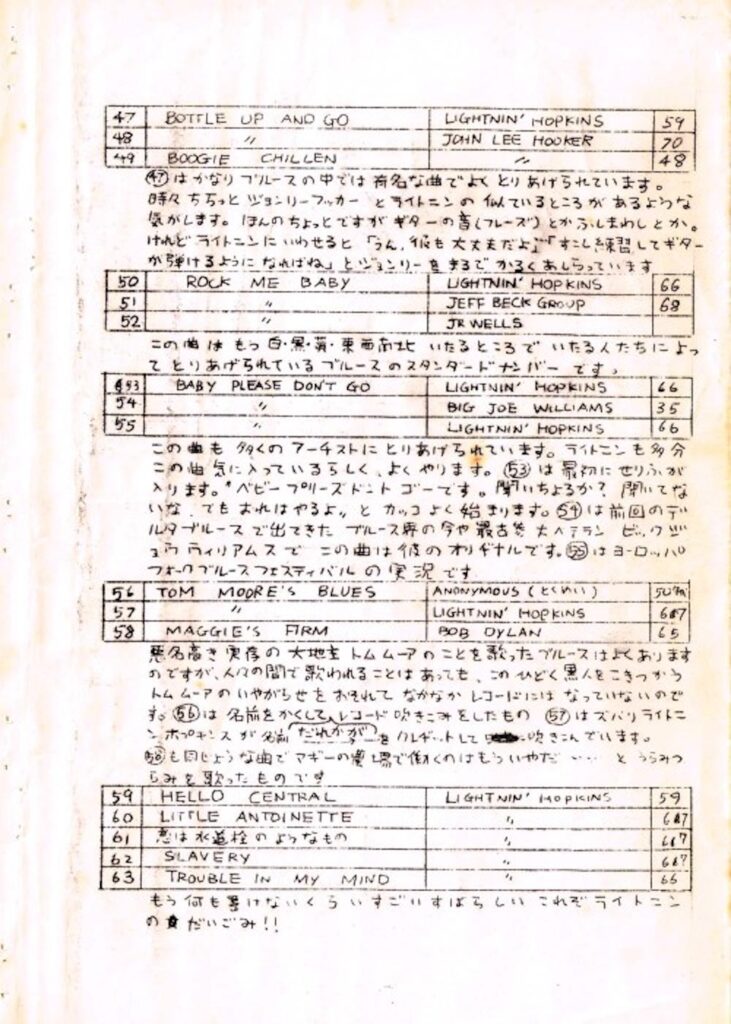 47 BOTTLE UP AND GO LIGHTNIN' HOPKINS 59
48 〃 JOHN LEE HOOKER 70
49 BOOGIE CHILLEN 〃 48
㊼はかなりブルースの中では有名な曲でよくとりあげられています。
時々ちらっとジョンリーフッカーとライトニンの似ているところがあるような
気がします。ほんのちょっとですがギターの音(フレーズ)とかふしまわしとか。
けれどライトニンにいわせると「うん、彼も大丈夫だよ」「すこし練習してギター
が弾けるようになればね」とジョンリーをまるでかるくあしらっています
50 ROCK ME BABY LIGHTNIN' HOPKINS 66
51 〃 JEFF BECK GROUP 68
52 〃 JR WELLS
この曲はもう白・黒・英・東西南北いたるところでいたる人たちによっ
てとりあげられているブルースのスタンダードナンバーです。
53 BABY PLEASE DON'T GO LIGHTNIN' HOPKINS 66
54 〃 BIG JOE WILLIAMS 35
55 〃 LIGHTNIN' HOPKINS 66
この曲も多くのアーチストにとりあげられています。ライトニンも多分
この曲気に入っているらしく、よくやります。㊼は最初にせりふが
入ります。"ベビープリーズドント ゴーです。聞いちょるか? 聞いてな
いな、でもおれはやるよ〟とカッコよく始まります。㊾は前回のデ
ルタブルースで出てきたブルース界の今や最古参大ベテラン ビッグジ
ョウウィリアムスでこの曲は彼のオリヂナルです。55はヨーロッパ
フォークブルースフェスティバルの実況です
56 TOM MOORE'S BLUES ANONYMOUS (とくめい)
57 〃 LIGHTNIN' HOPKINS
58 MAGGIE'S FARM BOB DYLAN 65
悪名高き実存の大地主トムムーアのことを歌ったブルースはよくあります
のですが、人々の間で歌われることはあっても、このひどく黒人をこきつかう
トムムーアのいやがらせをおそれてなかなかレコードにはなっていないので
す。56は名前をかくしてレコード吹きこみをしたもの 57はズバリライトニ
ンホプキンスが名前 だれかが をクレヂットして吹きこんでいます。
58も同じような曲でマギーの農場で働くのはもういやだ……とうらみつ
らみを歌ったものです
59 HELLO CENTRAL LIGHTNIN' HOPKINS 59
60 LITTLE ANTOINETTE 〃
61 恋は水道栓のようなもの 〃
62 SLAVERY 〃
63 TROUBLE IN MY MIND 〃 65
もう何も書けないくらいすごいすばらしい これぞライトニン
のだいごみ!!